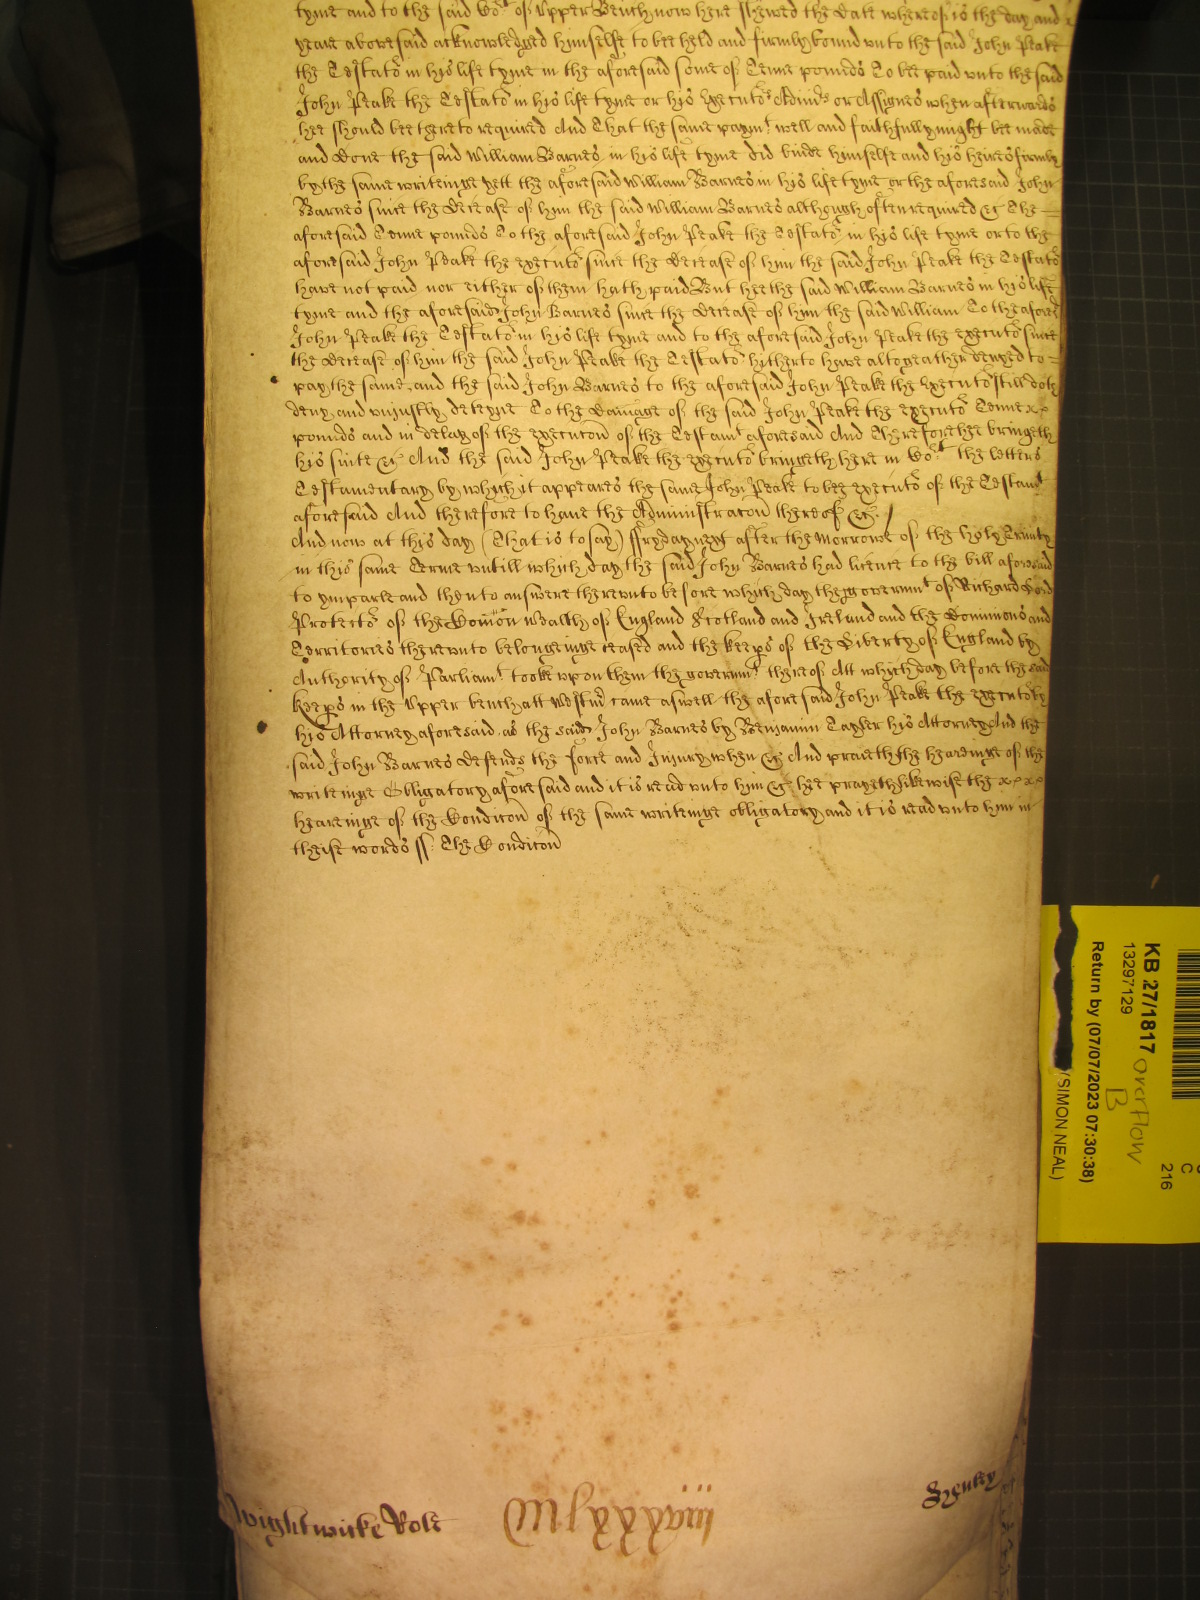 tyme and to the said Cot of Upper Bench now here shewed the date whereof is the day and
yeare abovesaid acknowledged himselfe to bee held and firmly bound unto the said John Peake
the Testator in his life tyme in the aforesaid some of Tenne pounds To bee paid unto the said
John Peake the Testator in his life tyme or his Executors Admrs or Assignes when afterwards
hee should bee thereto required And That the same paymt well and faithfully might bee made
and done the said William Barnes in his life tyme did binde himselfe and his heires firmly
by the same writeinge yett the aforesaid William Barnes in his life tyme or the aforesaid John
Barnes since the decease of him the said William Barnes although often required &c The
aforesaid Tenne pounds To the aforesaid John Peake the Testator in his life tyme or to the
aforesaid John Peake the executor since the decease of him the said John Peake the Testator
have not paid nor either of them hath paid But hee the said William Barnes in his life
tyme and the aforesaid John Barnes since the decease of him the said William To the aforesd
John Peake the Testator in his life tyme and to the aforesaid John Peake the executor since
the decease of him the said John Peake the Testator hitherto have altogeather denyed to
pay the same, and the said John Barnes to the aforesaid John Peake the Executor still doth
deny and unjustly deteyne To the damage of the said John Peake the executor Tenne xx
pounds and in delay of the execucon of the Testamt aforesaid And Therefore hee bringeth
his suite &c And the said John Peake the executor bringeth here in Cot the letters
Testamentary by which it appeares the same John Peake to bee executor of the Testamt
aforesaid And therefore to have the Administracon thereof &c.
And now at this day (That is to say) ffryday next after the Morrowe of the holy Trinity
in this same Terme untill which day the said John Barnes had licence to the bill aforesaid
to imparle and then to answere thereunto before which day the governmt of Richard Lord
Protector of the Comon Wealth of England Scotland and Ireland and the Dominions and
Territories thereunto belongeinge ceased and the keeps of the Liberty of England by
Authority of Parliamt tooke upon them the governmt thereof Att which day before the said
keeps in the Upper bench att Westm came aswell the aforesaid John Peake the executor by
his Attorney aforesaid as the said John Barnes by Benjamin his Attorney And the
said John Barnes defends the force and Injury when &c And praieth the heareinge of the
writeinge Obligatory aforesaid and it is read unto him &c hee prayeth likewise the xxxx
heareinge of the Condicon of the same writeinge obligatory and it is read unto him in
theise words ss. The Condicon
Wightwicke Rolt
KB 27/1817
13297129
Return by (07/07/2023 07:30:38)
(SIMON NEAL)
overflow
B
C
216